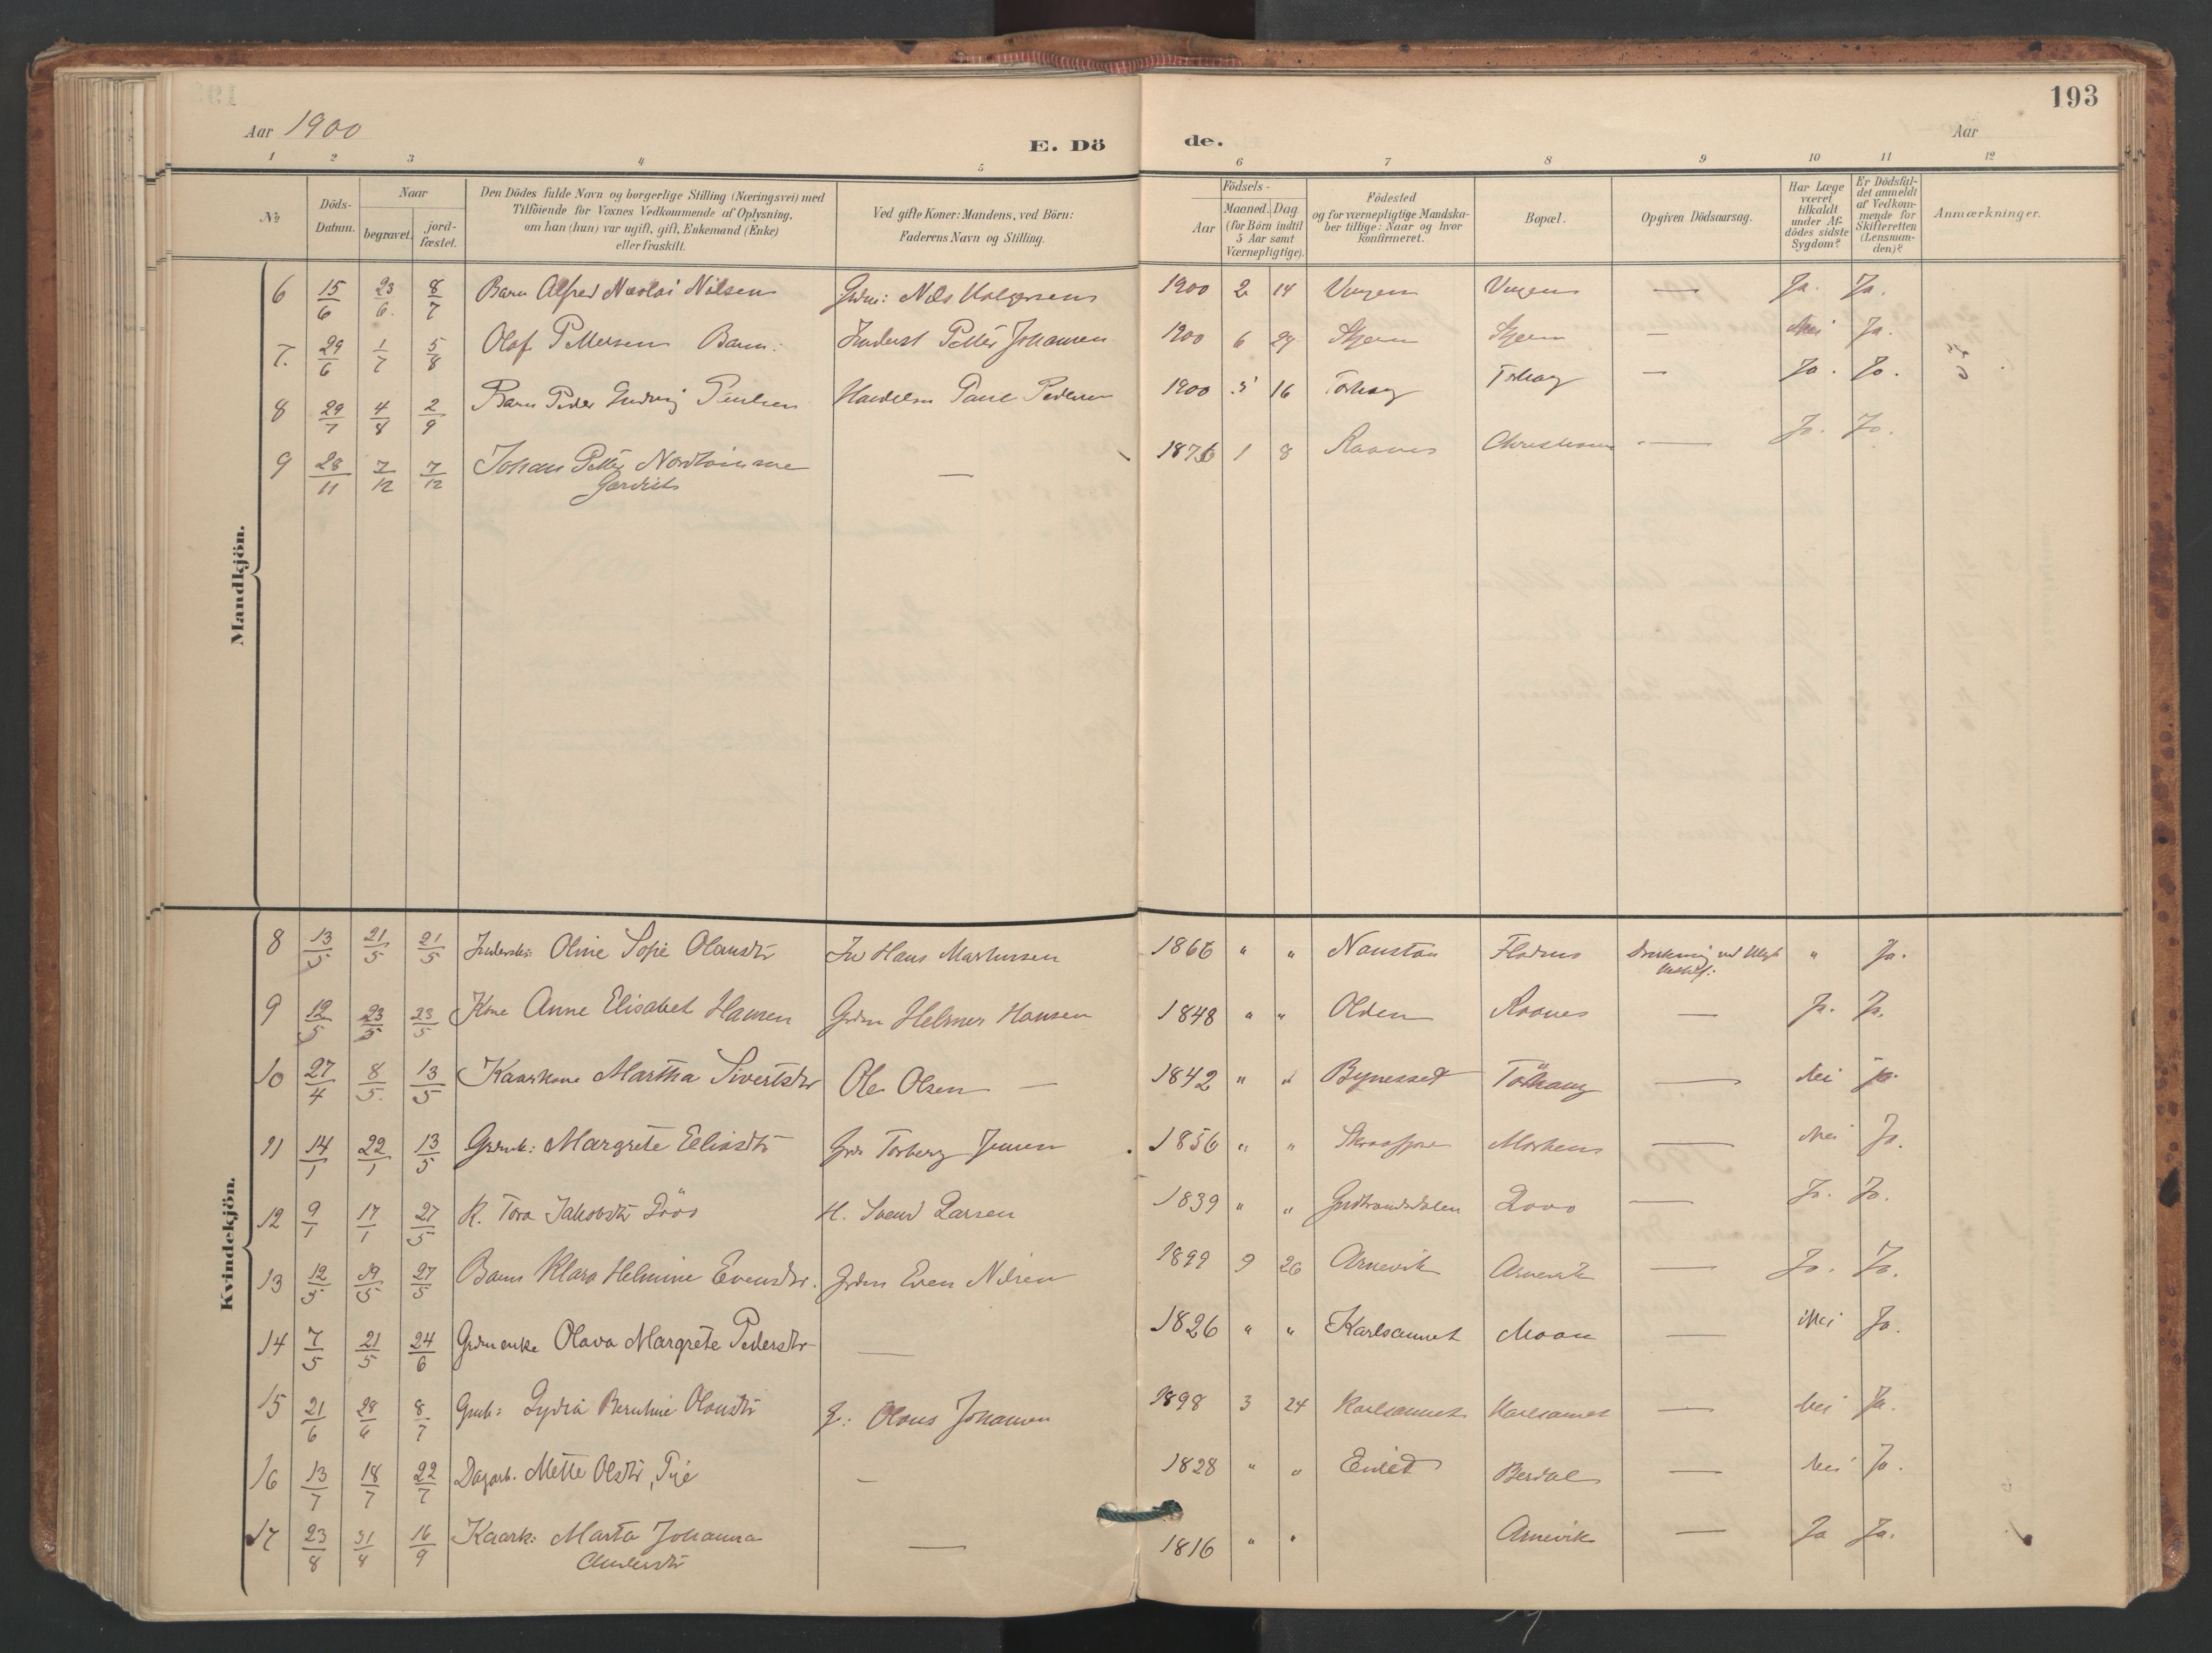 193
Aar 1900
E. Dö de.
Aar
1 2 3 4 5 6 7 8 9 10 11 12
No
Döds-Datum.
Naar
begravet.
jord-fæstet.
Den Dödes fulde Navn og borgerlige Stilling (Næringsvei) med
Tilföiende for Voxnes Vedkommende af Oplysning,
om han (hun) var ugift, gift, Enkemand (Enke)
eller fraskilt.
Ved gifte Koner: Mandens, ved Börn:
Faderens Navn og Stilling.
Födsels-
Aar
Maaned. Dag
(for Börn indtil
5 Aar samt
Værnepligtige).
Födested
og for værnepligtige Mandska-
ber tillige: Naar og hvor
konfirmeret.
Bopæl.
Opgiven Dödsaarsag.
Har Læge
været
tilkaldt
under Af-
dödes sidste
Sygdom?
Er Dödsfal-
det anmeldt
af Vedkom-
mende for
Skifteretten
(Lensman-
den)?
Anmærkninger.
Mandkjön.
6 15/6 23/6. 8/7 Barn Alfred Nicolai Nilsen Gdm: Nils 1900 2 14 — Ja. Ja.
7. 29/6 1/7 5/8 Olaf Pettersen Barn: Inderst Petter Johansen 1900 6 29 Skjern Skjern — Nei Ja.
8 29/7 4/8 2/9 Barn Peder Ludvig Paulsen Handelsm Paul Pedersen 1900 5 16 Törhaug Törhaug — Ja. Ja.
9 28/11 7/12 7/12 Johan Petter — 1876 1 8 Raanes — Ja. Ja.
Kvindekjön.
8 13/5 21/5 21/5 Oline Sofie Olausdtr In Hans Markussen 1866 " " Naustan " Ja.
9 12/5 23/5 23/5 Kone Anne Elisabet Hansen Gdm Helmer Hansen 1848 " " Olden Raanes — Ja. Ja.
10 27/4 8/5. 13/5 Kaarkone Martha Sivertsdtr Ole Olsen — 1842 " " Bynesset Törhaug — Nei ja.
11 14/1 22/1 13/5 Gdmk: Margrete Eliasdtr Gdm Torberg Jensen 1856 " " — Nei Ja.
12 9/1 17/1 27/5 K. Tora Jakobsdtr H. Svend Larsen 1839 " " Gudbrandsdalen — Ja. Ja.
13 12/5 19/5 27/5 Barn Klara Helmine Evensdtr. Gdm Even Nilsen 1899 9 26 Arnevik Arnevik — Ja. Ja.
14 7/5 21/5 24/6 Gdmenke Olava Margrete Pedersdtr — 1826 " " Karlsaunet Moan — Nei Ja.
15 21/6 28/6 8/7 Lydia Berntine Olausdtr G: Olaus Johansen 1898 3 24 Karlsaunet Karlsaunet — Nei Ja.
16 13/7 18/7 22/7 Mette Olsdtr, — 1828 " " Berdal — Nei Ja.
17 23/8 31/8 16/9 Kaark: Marta Johanna — 1816 " " Arnevik — Ja Ja.
Andersdtr